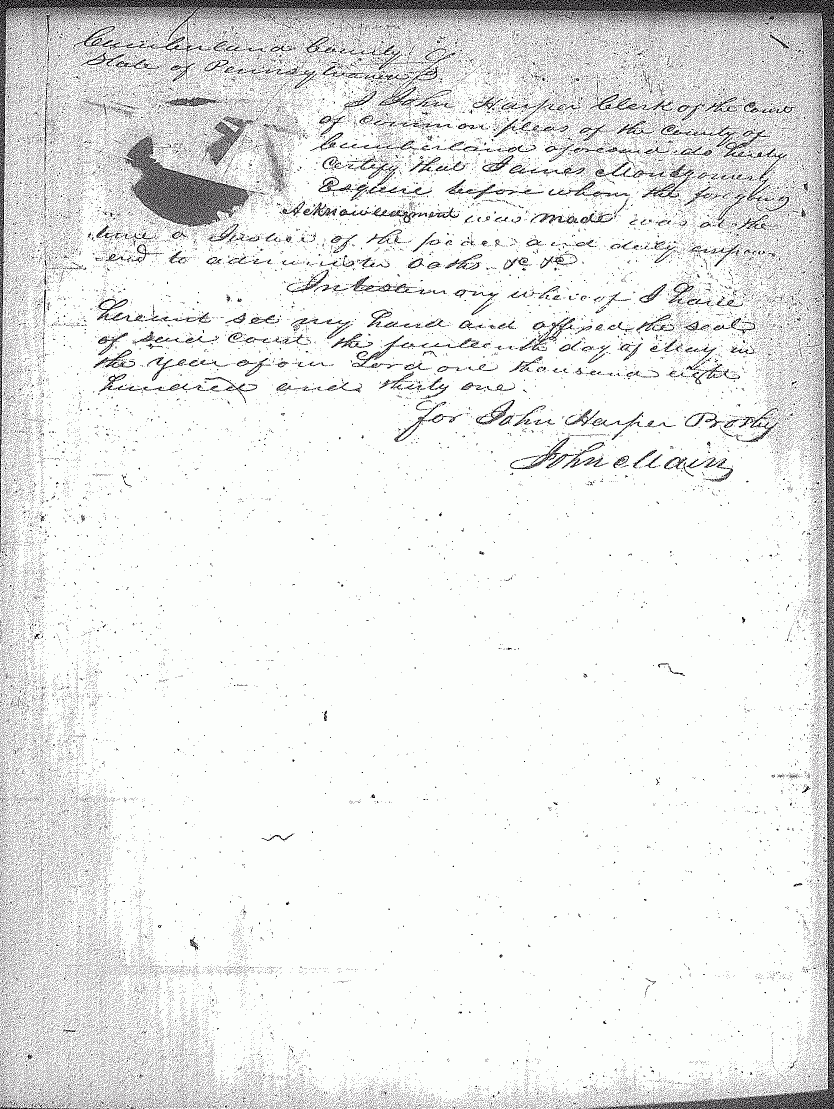 Cumberland County
State of Pennsylvania } ss
I John Harper Clerk of the Court
of common pleas of the County of
Cumberland aforesaid do hereby
certify that James Montgomery
Esquire before whom the forgoing
Acknowledgment was made was at the
time a Justice of the peace and duly empow
erd to administer oaths &c &c
In testimony whereof I have
hereunt set my hand and affixed the seal
of said Court the fourteenth day of May in
the year of our Lord one thousand eight
hundred and thirty one.
for John Harper Prothy
John Main